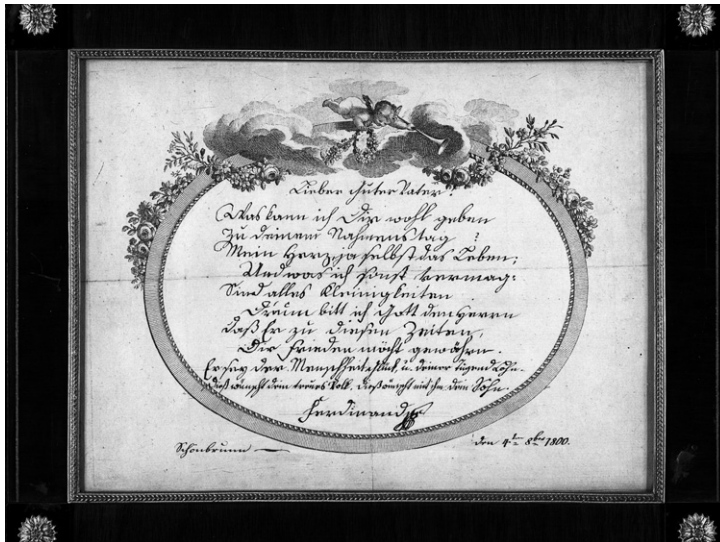 Lieber guter Vater!
Was kann ich Dir wohl geben
Zu deinem Nahmenstag?
Mein Herz, ja selbst das Leben;
Und was ich sonst vermag:
Sind alles Kleinigkeiten.
Drum bitt ich Gott den Herrn
daß Er zu diesen Zeiten,
Dir Frieden möcht gewähren.
Er sey der Menschheit Glück, u. deiner Tugend Lohn.
Dieß wünscht dein treues Volk, dieß wünscht mit ihm dein Sohn.
Ferdinand
Schönbrunn
den 4t 8bre 1800.